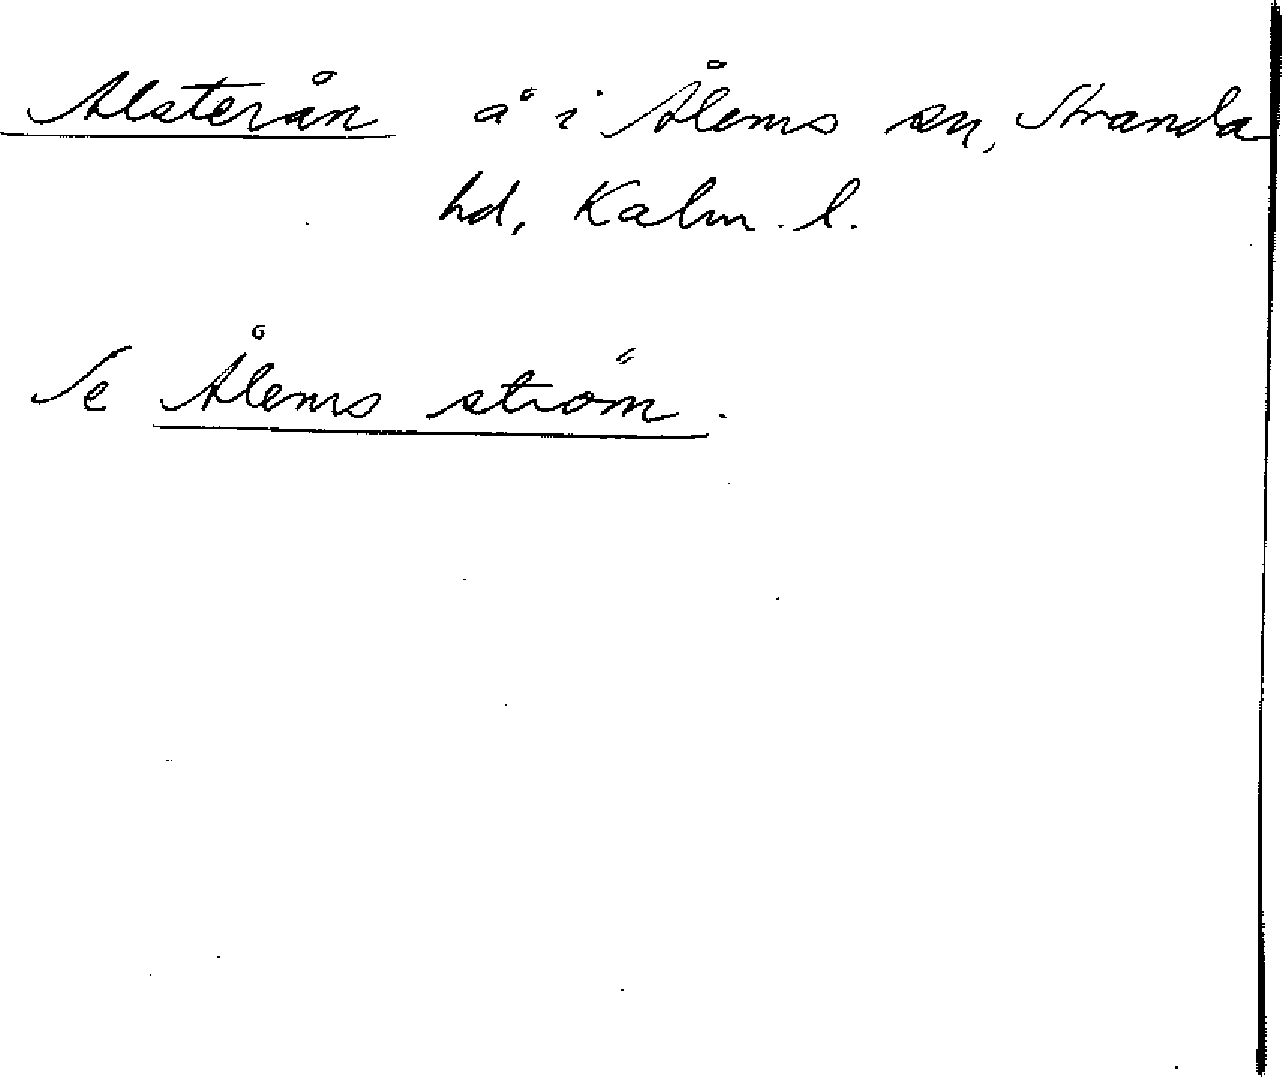 Alsterån å i Ålems sn, Stranda
hd, Kalm. l.
Se Ålems ström.